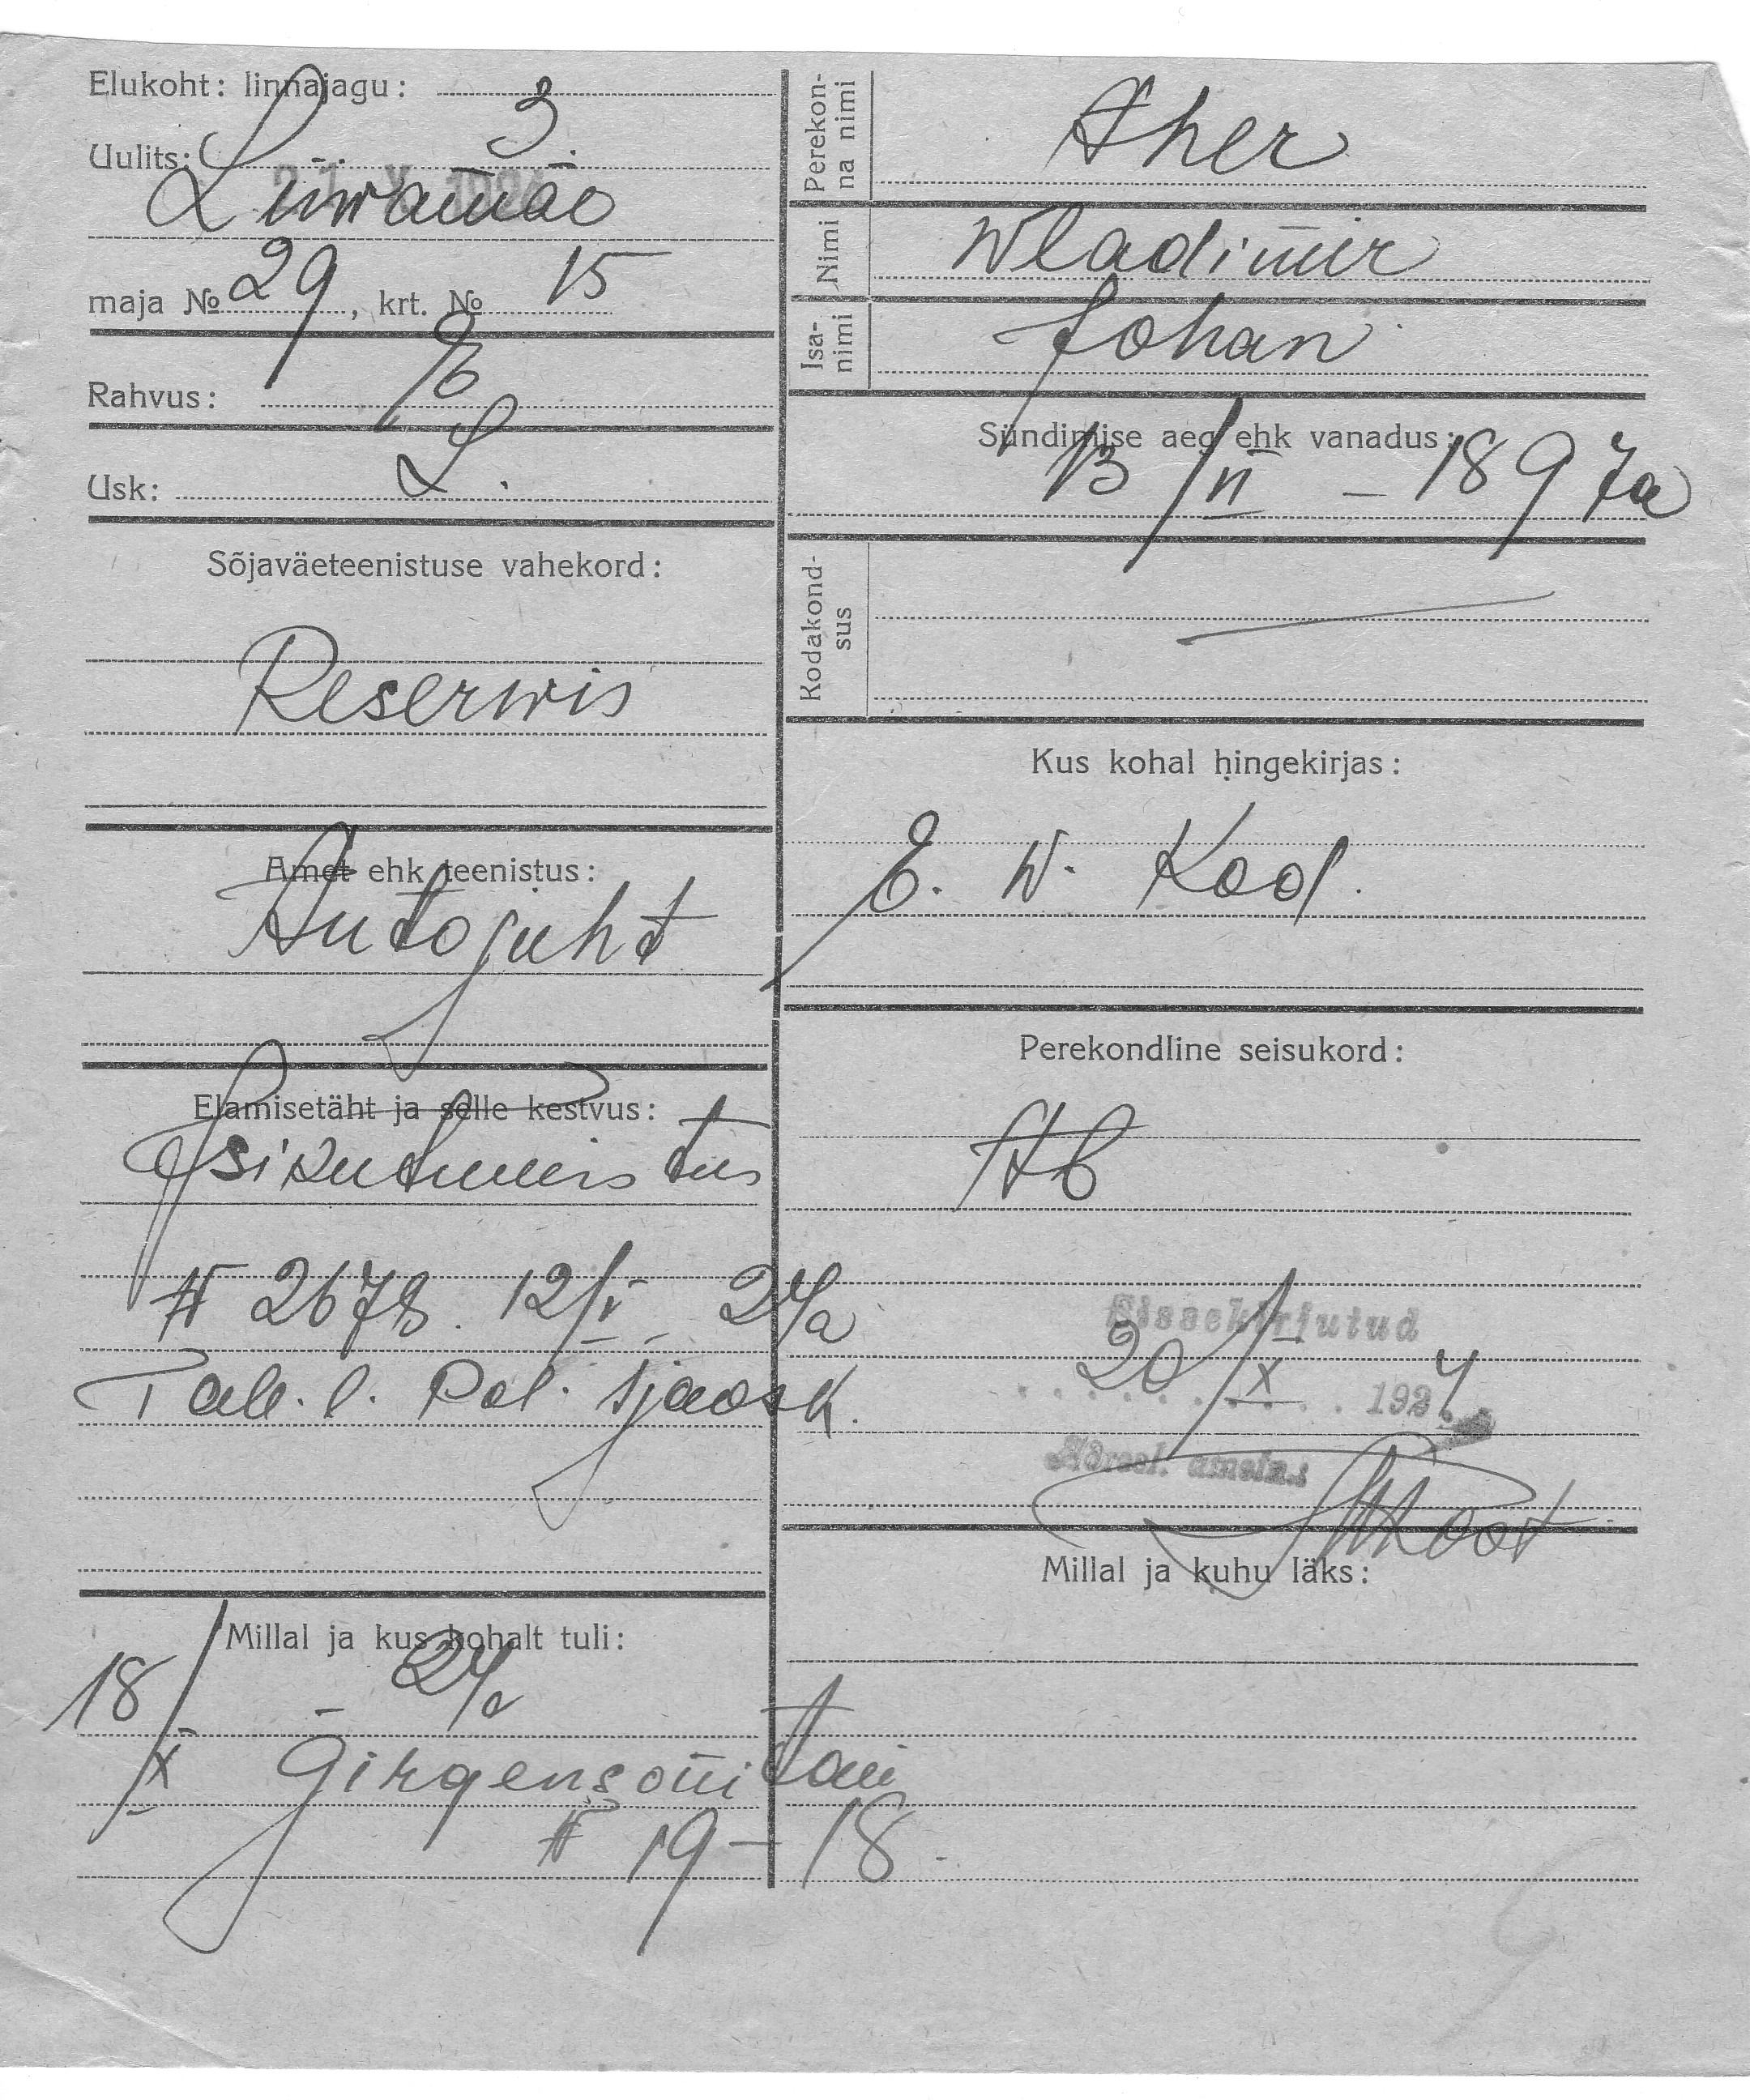 Elukoht: linnajagu: 3.
Uulits:
21 X 1924
Liiwamäe
maja № 29, krt. № 15
Rahvus: E
Usk: L.
Sõjaväeteenistuse vahekord:
Reserwis
Amet ehk teenistus:
Autojuht
Elamisetäht ja selle kestvus:
Isikutunnistus
N 2678. 12/V 24a
Tall. l. Pol. 1 jaosk.
Millal ja kus kohalt tuli:
18/X - 24a
Girgensoni tän
N 19-18.
Perekonna nimi
Aher
Nimi
Wladimir
Isanimi
Johan
Sündimise aeg ehk vanadus:
13/VI - 1897a
Kodakondsus
Kus kohal hingekirjas:
E. W. Kod.
Perekondline seisukord:
Ab
Sissekirjutud
20/X 1924
Adressl. ametn.:
Millal ja kuhu läks: